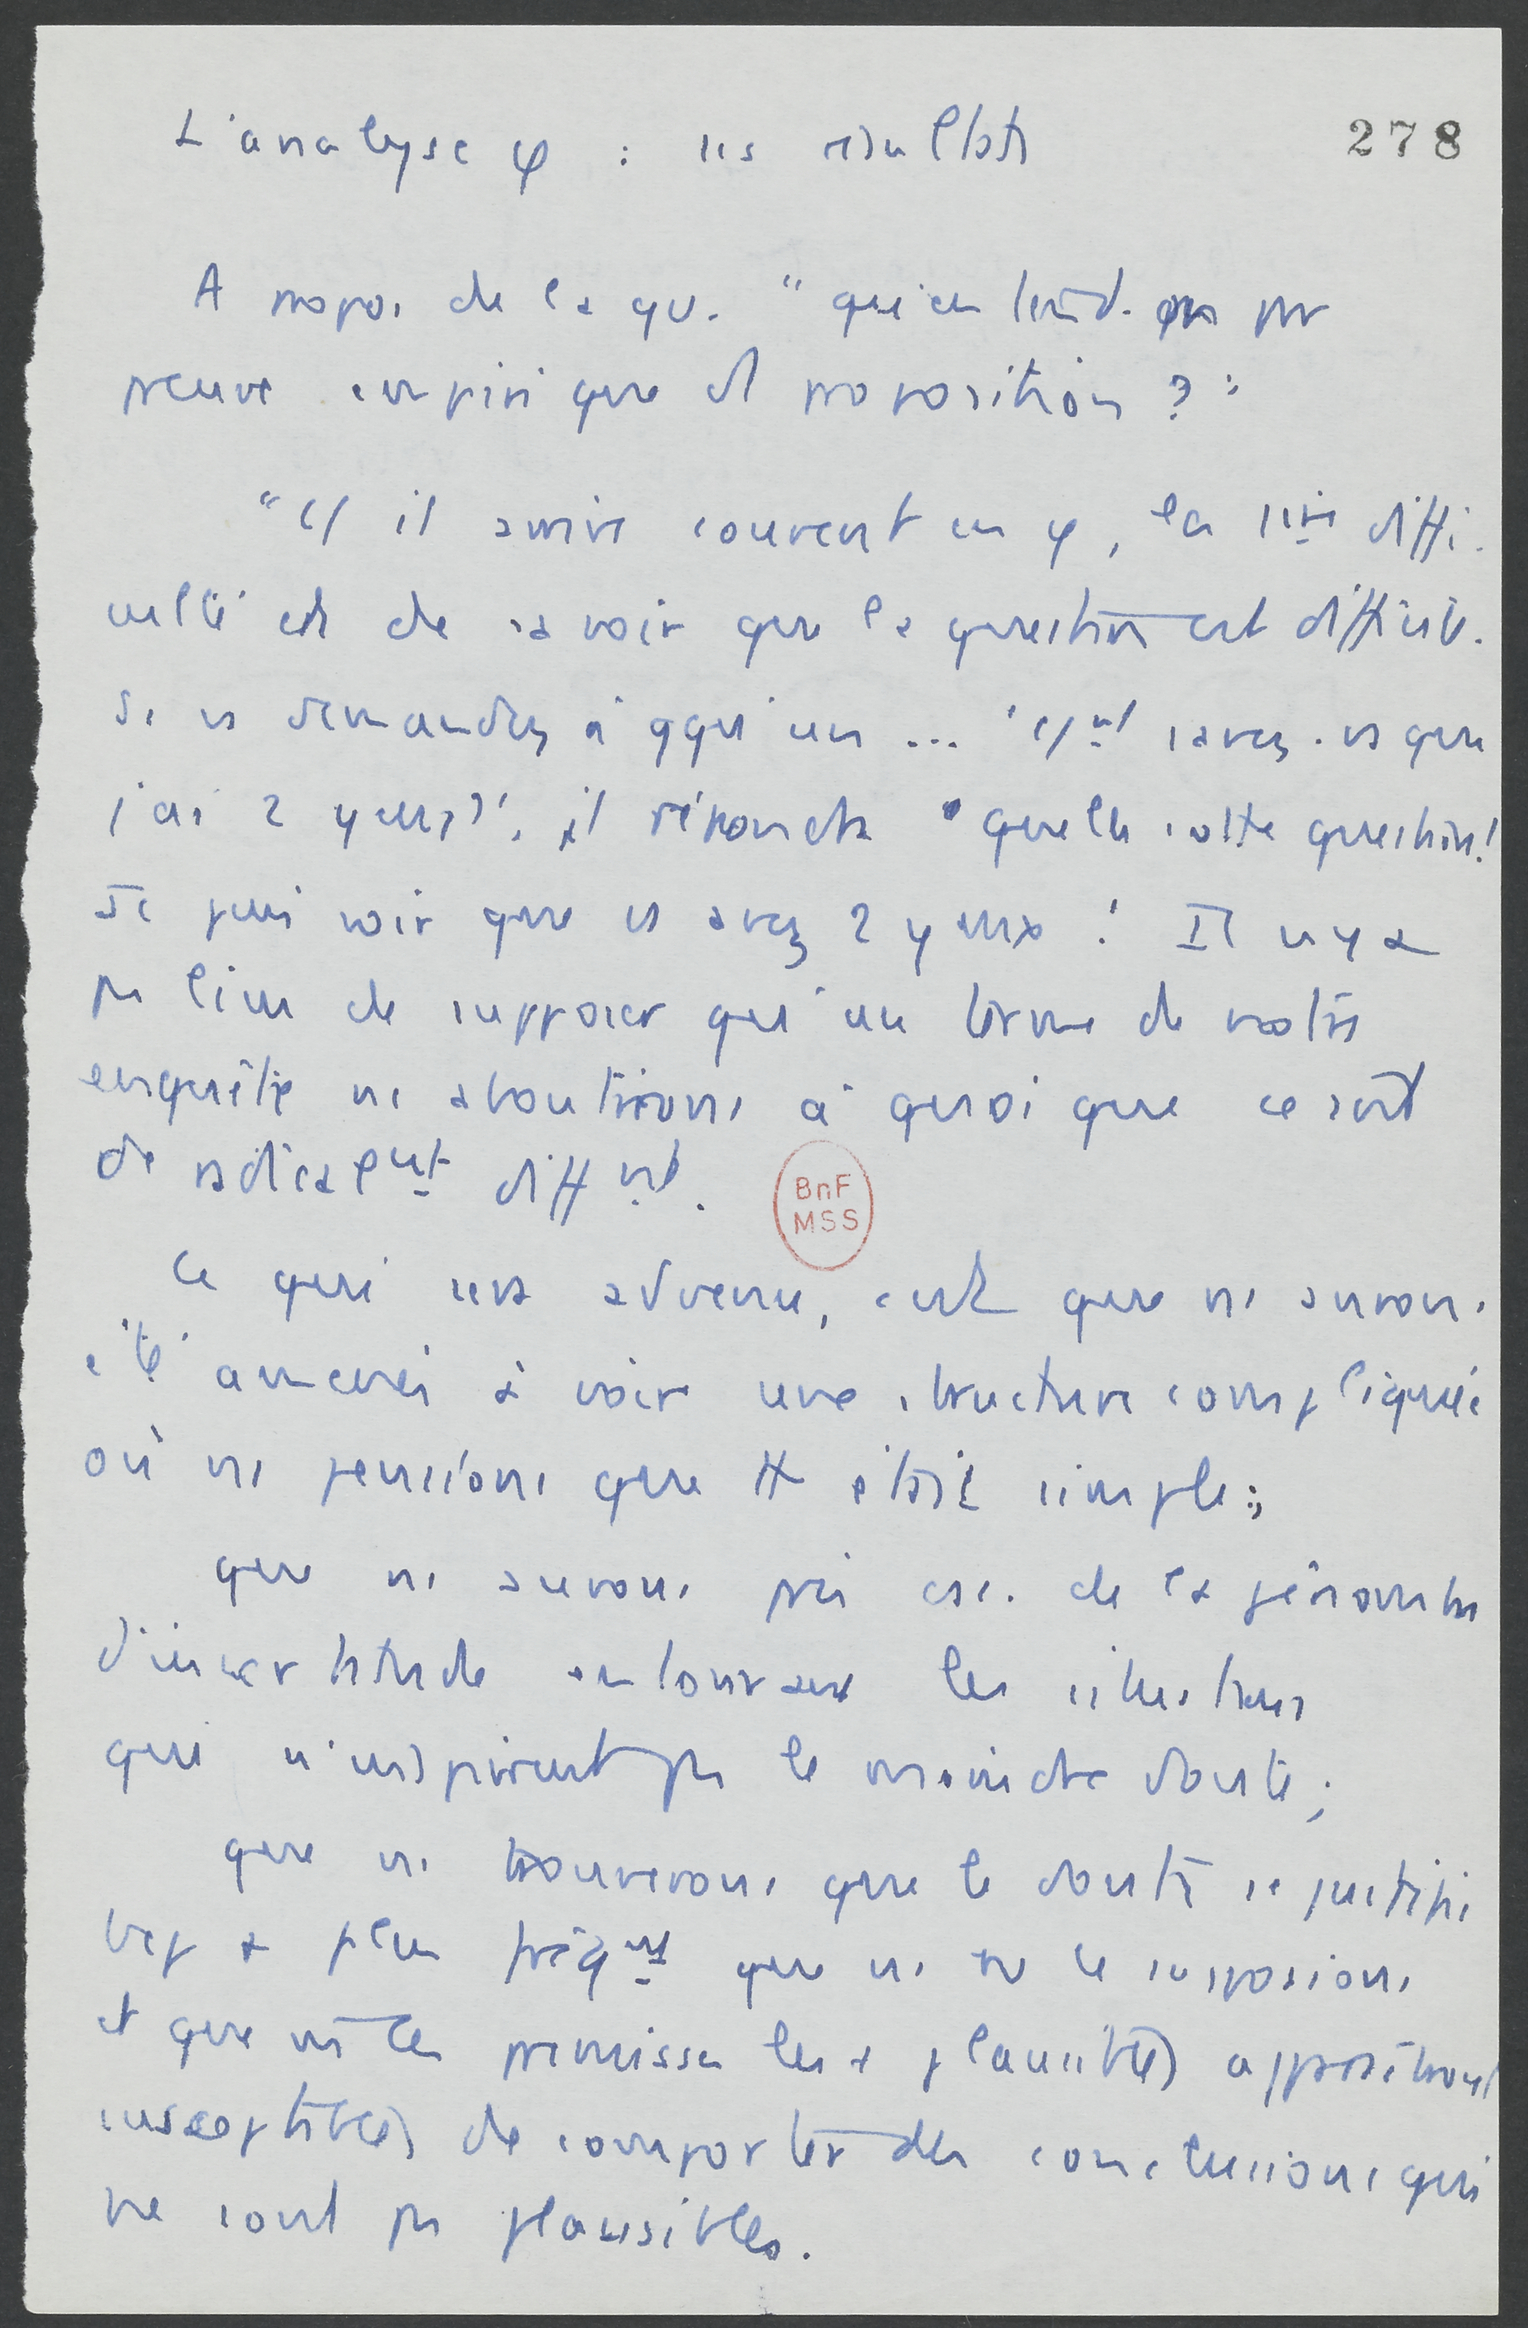 L'analyse φ : ses résultats
278
A propos de la qu. "qu'entend-on par
preuve empirique et proposition ? :
"C/ il arrive souvent en φ, la 1ère diffi-
culté est de savoir que la question est difficile.
Si vs demandez à qqu'un ... 'C/nt savez-vs que
j'ai 2 yeux?', il répondra "quelle sotte question!
Je puis voir que vs avez 2 yeux! Il n'y a
pas lieu de supposer qu'au terme de notre
enquête ns aboutirons à quoi que ce soit
de radicalnt diffnt.
BnF
MSS
Ce qui sera advenu, c'est que ns aurons
été amenés à voir une structure compliquée
où ns pensions que tt était simple;
que ns aurons pris csc. de la pénombre
d'incertitude entourant les situations
qui n'inspirent pas le moindre doute;
que ns trouverons que le doute se justifie
bcp + plus fréqnt que ns ne le supposions
et que m̂ les prémisses les + plausibles apparaîtront
susceptibles de comporter des conclusions qui
ne sont pas plausibles.